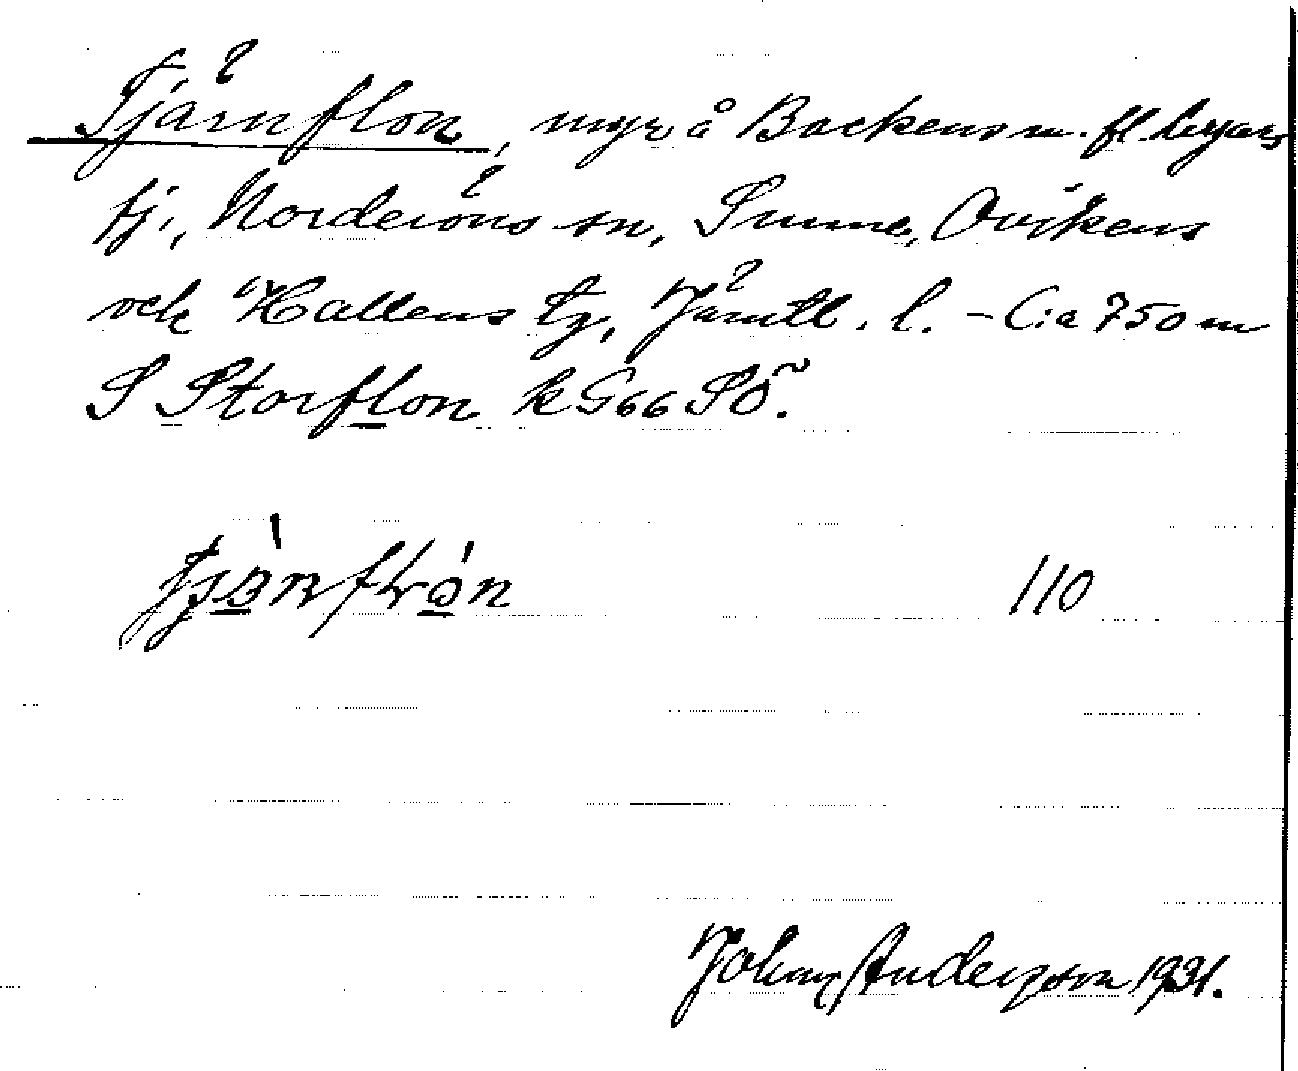 Tjärnflon, myr å Backens m. fl. byars
fj., Norderöns sn, Sunne, Ovikens
och Hallens tg, Jämtl. l. - C:a 750 m
S Storflon k G66 SÖ.
110
Johnny Anderson 1931.